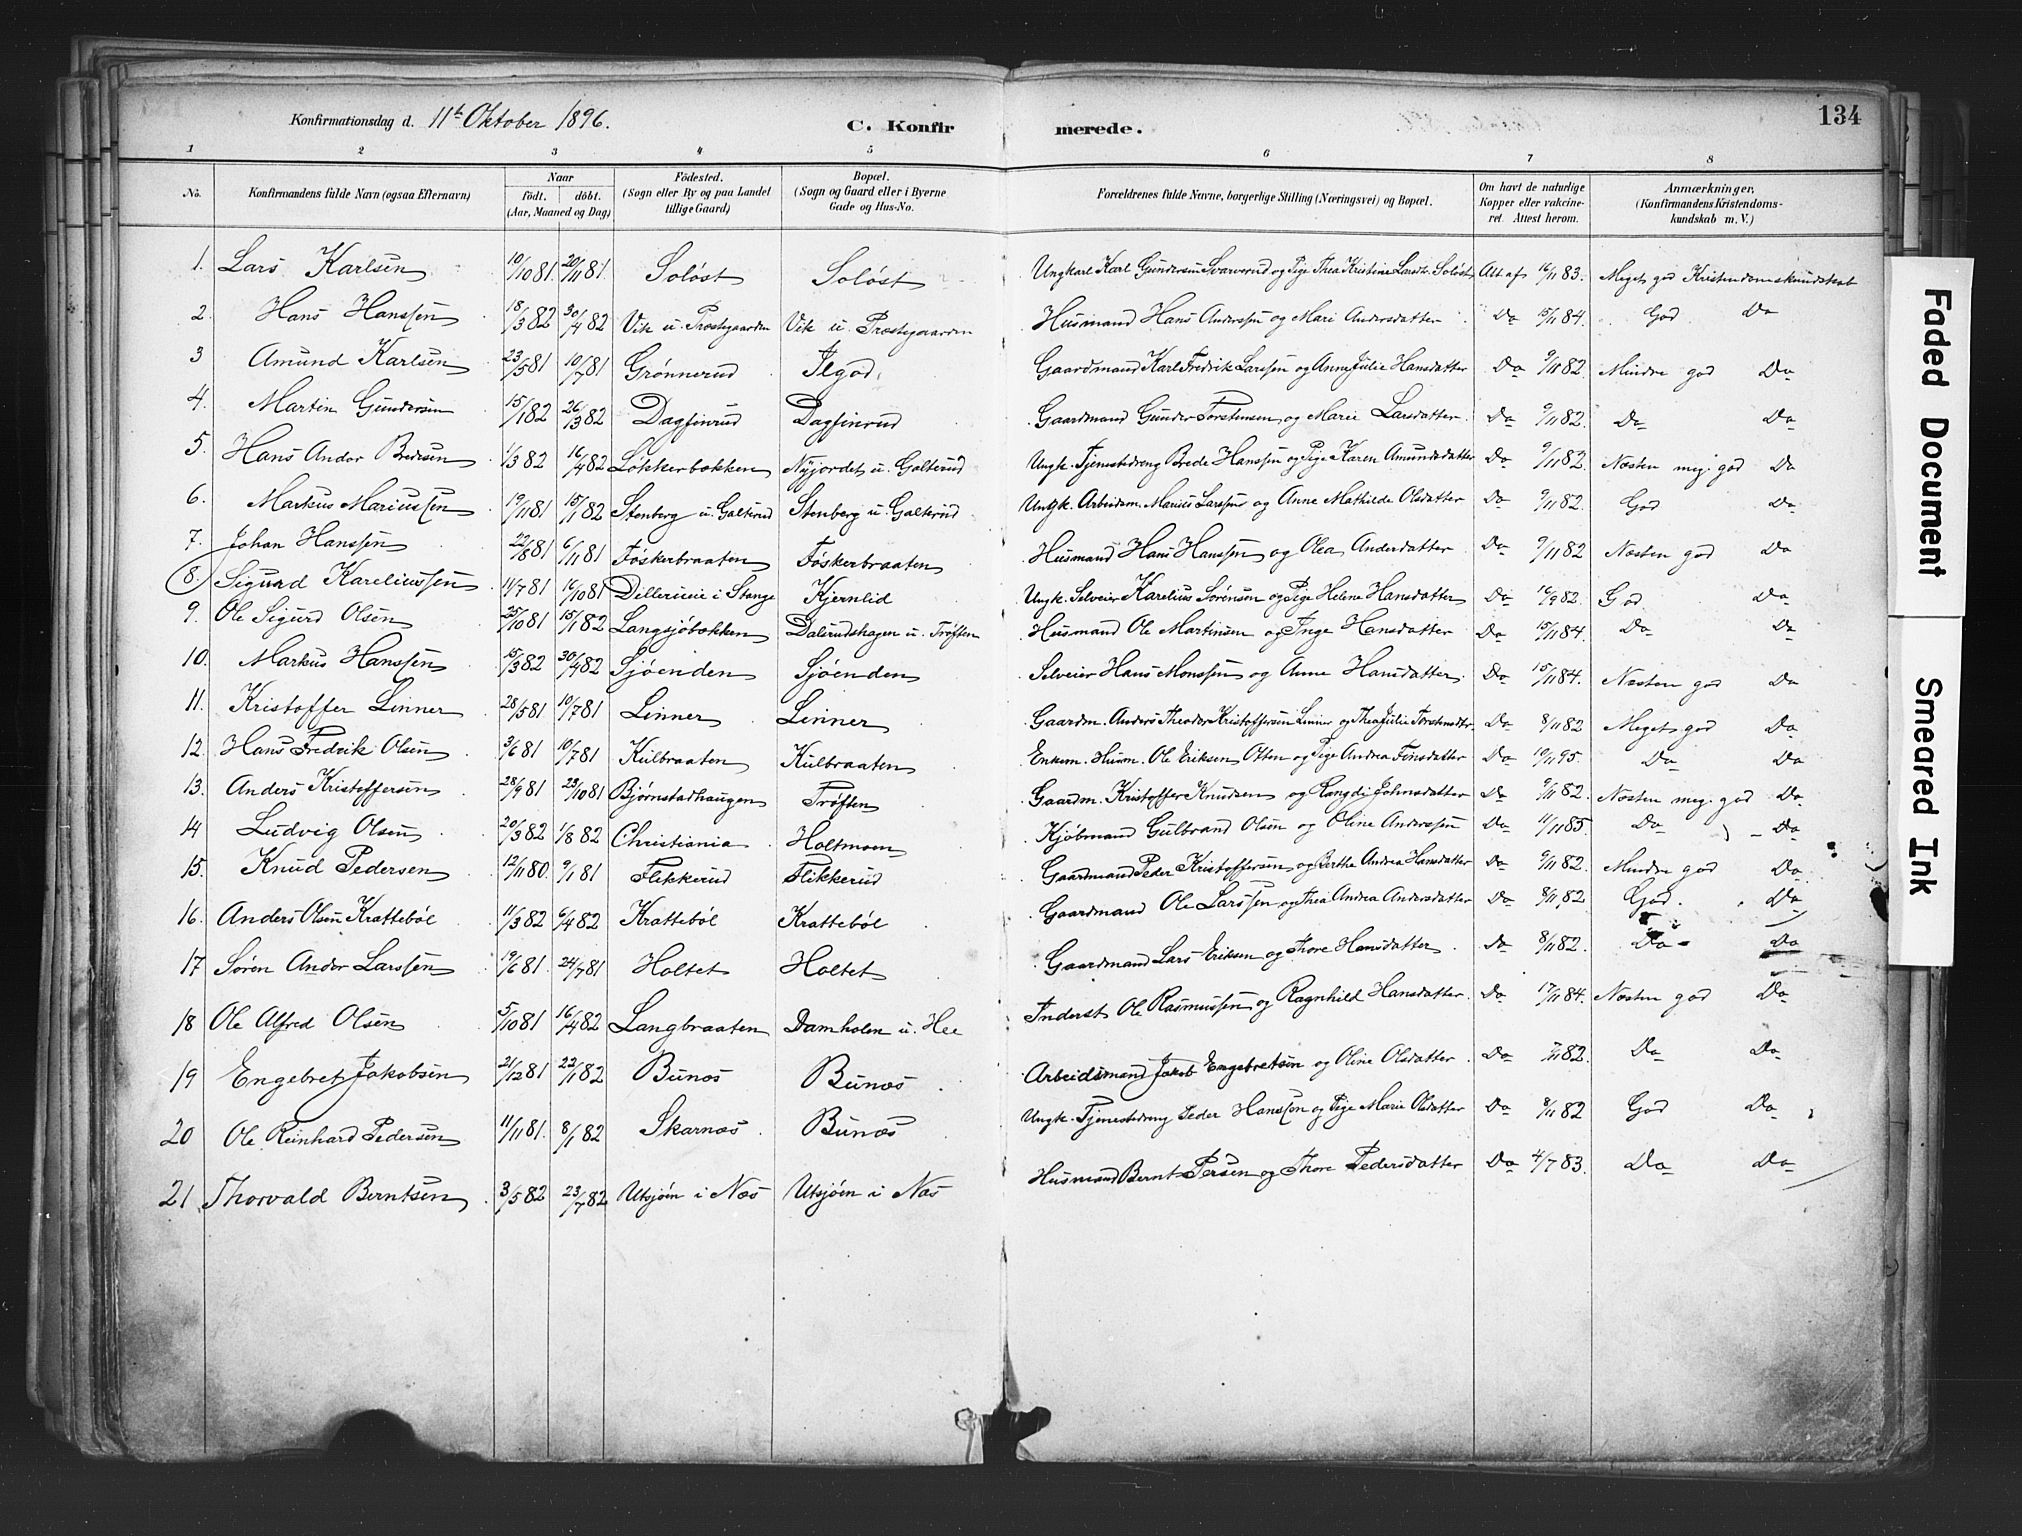 Konfirmationsdag d. 11te Oktober 1896. C. Konfirmerede. 134
1 2 3 4 5 6 7 8
No. Konfirmandens fulde Navn (ogsaa Efternavn) Naar födt. döbt. (Aar, Maaned og Dag) Födested. (Sogn eller By og paa Landet tillige Gaard) Bopæl. (Sogn og Gaard eller i Byerne Gade og Hus-No. Forældrenes fulde Navne, borgerlige Stilling (Næringsvei) og Bopæl. Om havt de naturlige Kopper eller vakcineret. Attest herom. Anmærkninger, (Konfirmandens Kristendomskundskab m. V.)
1. Lars Karlsen 10/10 81 20/11 81. Soløst Soløst Ungkarl Karl Gundersen Svarverud og Pige Thea Kristine Larsdtr. Soløst Att af 16/11 83. Meget god Kristendomskundskab
2. Hans Hanssen 18/3 82 30/4 82 Vik u. Præstegaarden Vik u. Præstegaarden Husmand Hans Anderssen og Mari Andersdatter Do 15/11 84. God Do
3 Amund Karlsen 23/5 81 10/7 81 Grønnerud Ilgod. Gaardmand Karl Fredrik Larssen og Anne Julie Hansdatter Do 9/11 82. Mindre god Do
4. Martin Gundersen 15/1 82 26/3 82 Dagfinrud Dagfinrud Gaardmand Gunder Torstensen og Marie Larsdatter Do 9/11 82. Do Do
5. Hans Andor Bredesen 1/3 82 16/4 82 Løkkerbækken Nyjordet u. Galterud Ungk. Tjenestedreng Brede Hanssen og Pige Karen Amundsdatter Do 9/11 82. Næsten meg. god Do
6. Markus Mariussen 19/11 81 15/1 82 Stenberg u. Galterud Stenberg u. Galterud Ungk. Arbeidsm. Marius Larssen og Anne Mathilde Olsdatter Do 9/11 82. God Do
7. Johan Hanssen 22/8 81 6/11 81 Føskerbraaten Føskerbraaten Husmand Hans Hanssen og Olea Andersdatter Do 9/11 82 Næsten god Do
8. Sigurd Kareliussen 11/7 81 16/10 81 Dillerueie i Stange Kjernlid Ungk. Selveier Karelius Sørensen og Pige Helene Hansdatter Do 16/9 82. God. Do
9. Ole Sigurd Olsen 25/10 81 15/1 82 Langsjøbækken Dalerudshagen u. Trøften Husmand Ole Martinsen og Inge Hansdatter Do 15/11 84. Do Do
10. Markus Hanssen 15/3 82 30/4 82 Sjøenden Sjøenden Selveier Hans Monssen og Anne Hansdatter. Do 15/11 84. Næsten god Do
11. Kristoffer Linner 28/5 81 10/7 81 Linner Linner Gaardm. Anders Theodor Kristoffersen Linner og Thea Julie Torstensdtr. Do 8/11 82 Meget god Do
12. Hans Fredrik Olsen 3/6 81 10/7 81 Kulbraaten Kulbraaten Enkem. Husm. Ole Eriksen Otten og Pige Andrea Tønsdatter Do 19/11 95. Do Do
13. Anders Kristoffersen 28/9 81 23/10 81 Bjørnstadhaugen Trøften Gaardm. Kristoffer Knudsen og Rangdi Johnsdatter Do 9/11 82. Næsten meg. god Do
14 Ludvig Olsen 20/3 82 1/8 82 Christiania Holtmoen Kjøbmand Gulbrand Olsen og Oline Anderssen Do 11/11 85. Do Do
15. Knud Pedersen 12/11 80. 9/1 81 Flikkerud Flikkerud Gaardmand Peder Kristoffersen og Berthe Andrea Hansdatter Do 9/11 82. Mindre god Do
16. Anders Olsen Krattebøl 11/3 82 6/4 82 Krattebøl Krattebøl Gaardmand Ole Larssen og Thea Andrea Andersdatter Do 8/11 82 God. Do
17 Søren Andor Larssen 19/6 81. 24/7 81 Holtet Holtet Gaardmand Lars Eriksen og Thore Hansdatter Do 8/11 82. Do Do
18 Ole Alfred Olsen 5/10 81 16/4 82 Langbraaten Damholen u. Hee Inderst Ole Rasmussen og Ragnhild Hansdatter. Do 17/11 84. Næsten god Do
19 Engebret Jakobsen 21/12 81 22/1 82 Bunæs Bunæs Arbeidsmand Jakob Engebretsen og Oline Olsdatter Do 82. Do Do
20 Ole Reinhard Pedersen 11/11 81. 8/1 82 Skarnæs Bunæs Ungk. Tjenestedreng Peder Hanssen og Pige Marie Olsdatter Do 8/11 82 God Do
21 Thorvald Berntsen 3/5 82 23/7 82 Utsjøen i Næs Utsjøen i Næs Husmand Bernt Persen og Thore Pedersdatter Do 4/7 83. Do Do
Faded Document
Smeared Ink